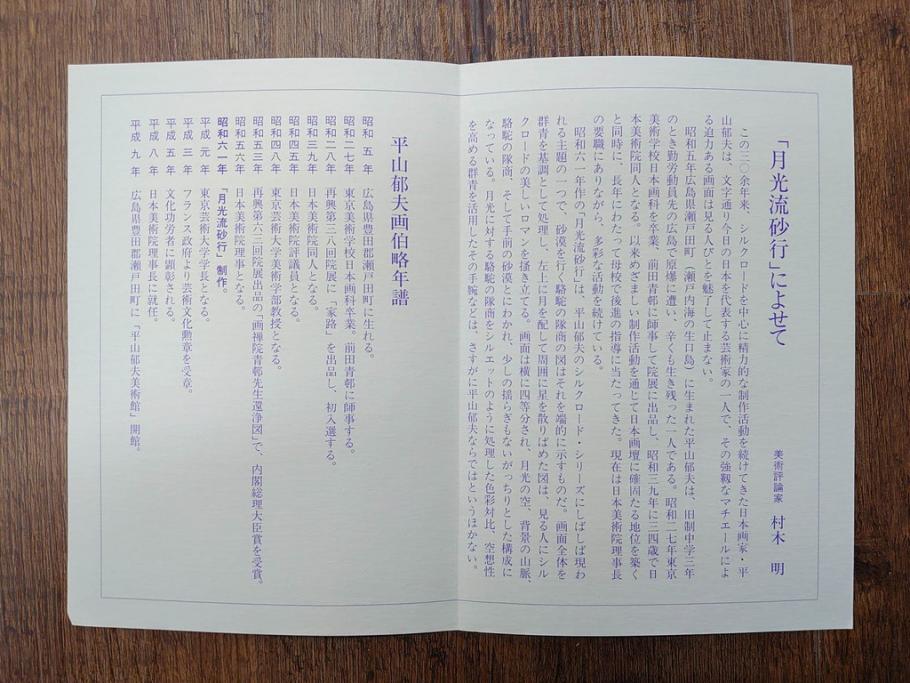 「月光流砂行」によせて
美術評論家　村木　明
この三〇余年来、シルクロードを中心に精力的な制作活動を続けてきた日本画家・平
山郁夫は、文字通り今日の日本を代表する芸術家の一人で、その強靱なマチエールによ
る迫力ある画面は見る人びとを魅了して止まない。
昭和五年広島県瀬戸田町（瀬戸内海の生口島）に生まれた平山郁夫は、旧制中学三年
のとき勤労動員先の広島で原爆に遭い、辛くも生き残った一人である。昭和二七年東京
美術学校日本画科を卒業、前田青邨に師事して院展に出品し、昭和三九年に三四歳で日
本美術院同人となる。以来めざましい制作活動を通じて日本画壇に確固たる地位を築く
と同時に、長年にわたって母校で後進の指導に当たってきた。現在は日本美術院理事長
の要職にありながら、多彩な活動を続けている。
昭和六一年作の「月光流砂行」は、平山郁夫のシルクロード・シリーズにしばしば現わ
れる主題の一つで、砂漠を行く駱駝の隊商の図はそれを端的に示すものだ。画面全体を
群青を基調として処理し、左上に月を配して周囲に星を散りばめた図は、見る人にシル
クロードの美しいロマンを掻き立てる。画面は横に四等分され、月光の空、背景の山脈、
駱駝の隊商、そして手前の砂漠とにわかれ、少しの揺らぎもないがっちりとした構成に
なっている。月光に対する駱駝の隊商をシルエットのように処理した色彩対比、空想性
を高める群青を活用したその手腕などは、さすがに平山郁夫ならではというほかない。
平山郁夫画伯略年譜
昭和　五　年　広島県豊田郡瀬戸田町に生れる。
昭和二七年　東京美術学校日本画科卒業。前田青邨に師事する。
昭和二八年　再興第三八回院展に「家路」を出品し、初入選する。
昭和三九年　日本美術院同人となる。
昭和四五年　日本美術院評議員となる。
昭和四八年　東京芸術大学美術学部教授となる。
昭和五三年　再興第六三回院展出品の「画禅院青邨先生還浄図」で、内閣総理大臣賞を受賞。
昭和五六年　日本美術院理事となる。
昭和六一年　「月光流砂行」制作。
平成　元　年　東京芸術大学学長となる。
平成　三　年　フランス政府より芸術文化勲章を受章。
平成　五　年　文化功労者に顕彰される。
平成　八　年　日本美術院理事長に就任。
平成　九　年　広島県豊田郡瀬戸田町に「平山郁夫美術館」開館。